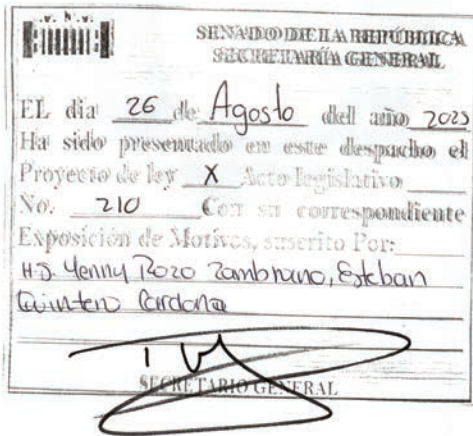 SENADO DE LA REPÚBLICA
SECRETARÍA GENERAL
EL dia 26 de Agosto del año 2025
Ha sido presentado en este despacho el
Proyecto de ley X Acto legislativo
No. 210 Con su correspondiente
Exposición de Motivos, suscrito Por:
H.S. Yenny Rozo Zambrano, Esteban
Quintero Cardona
SECRETARIO GENERAL